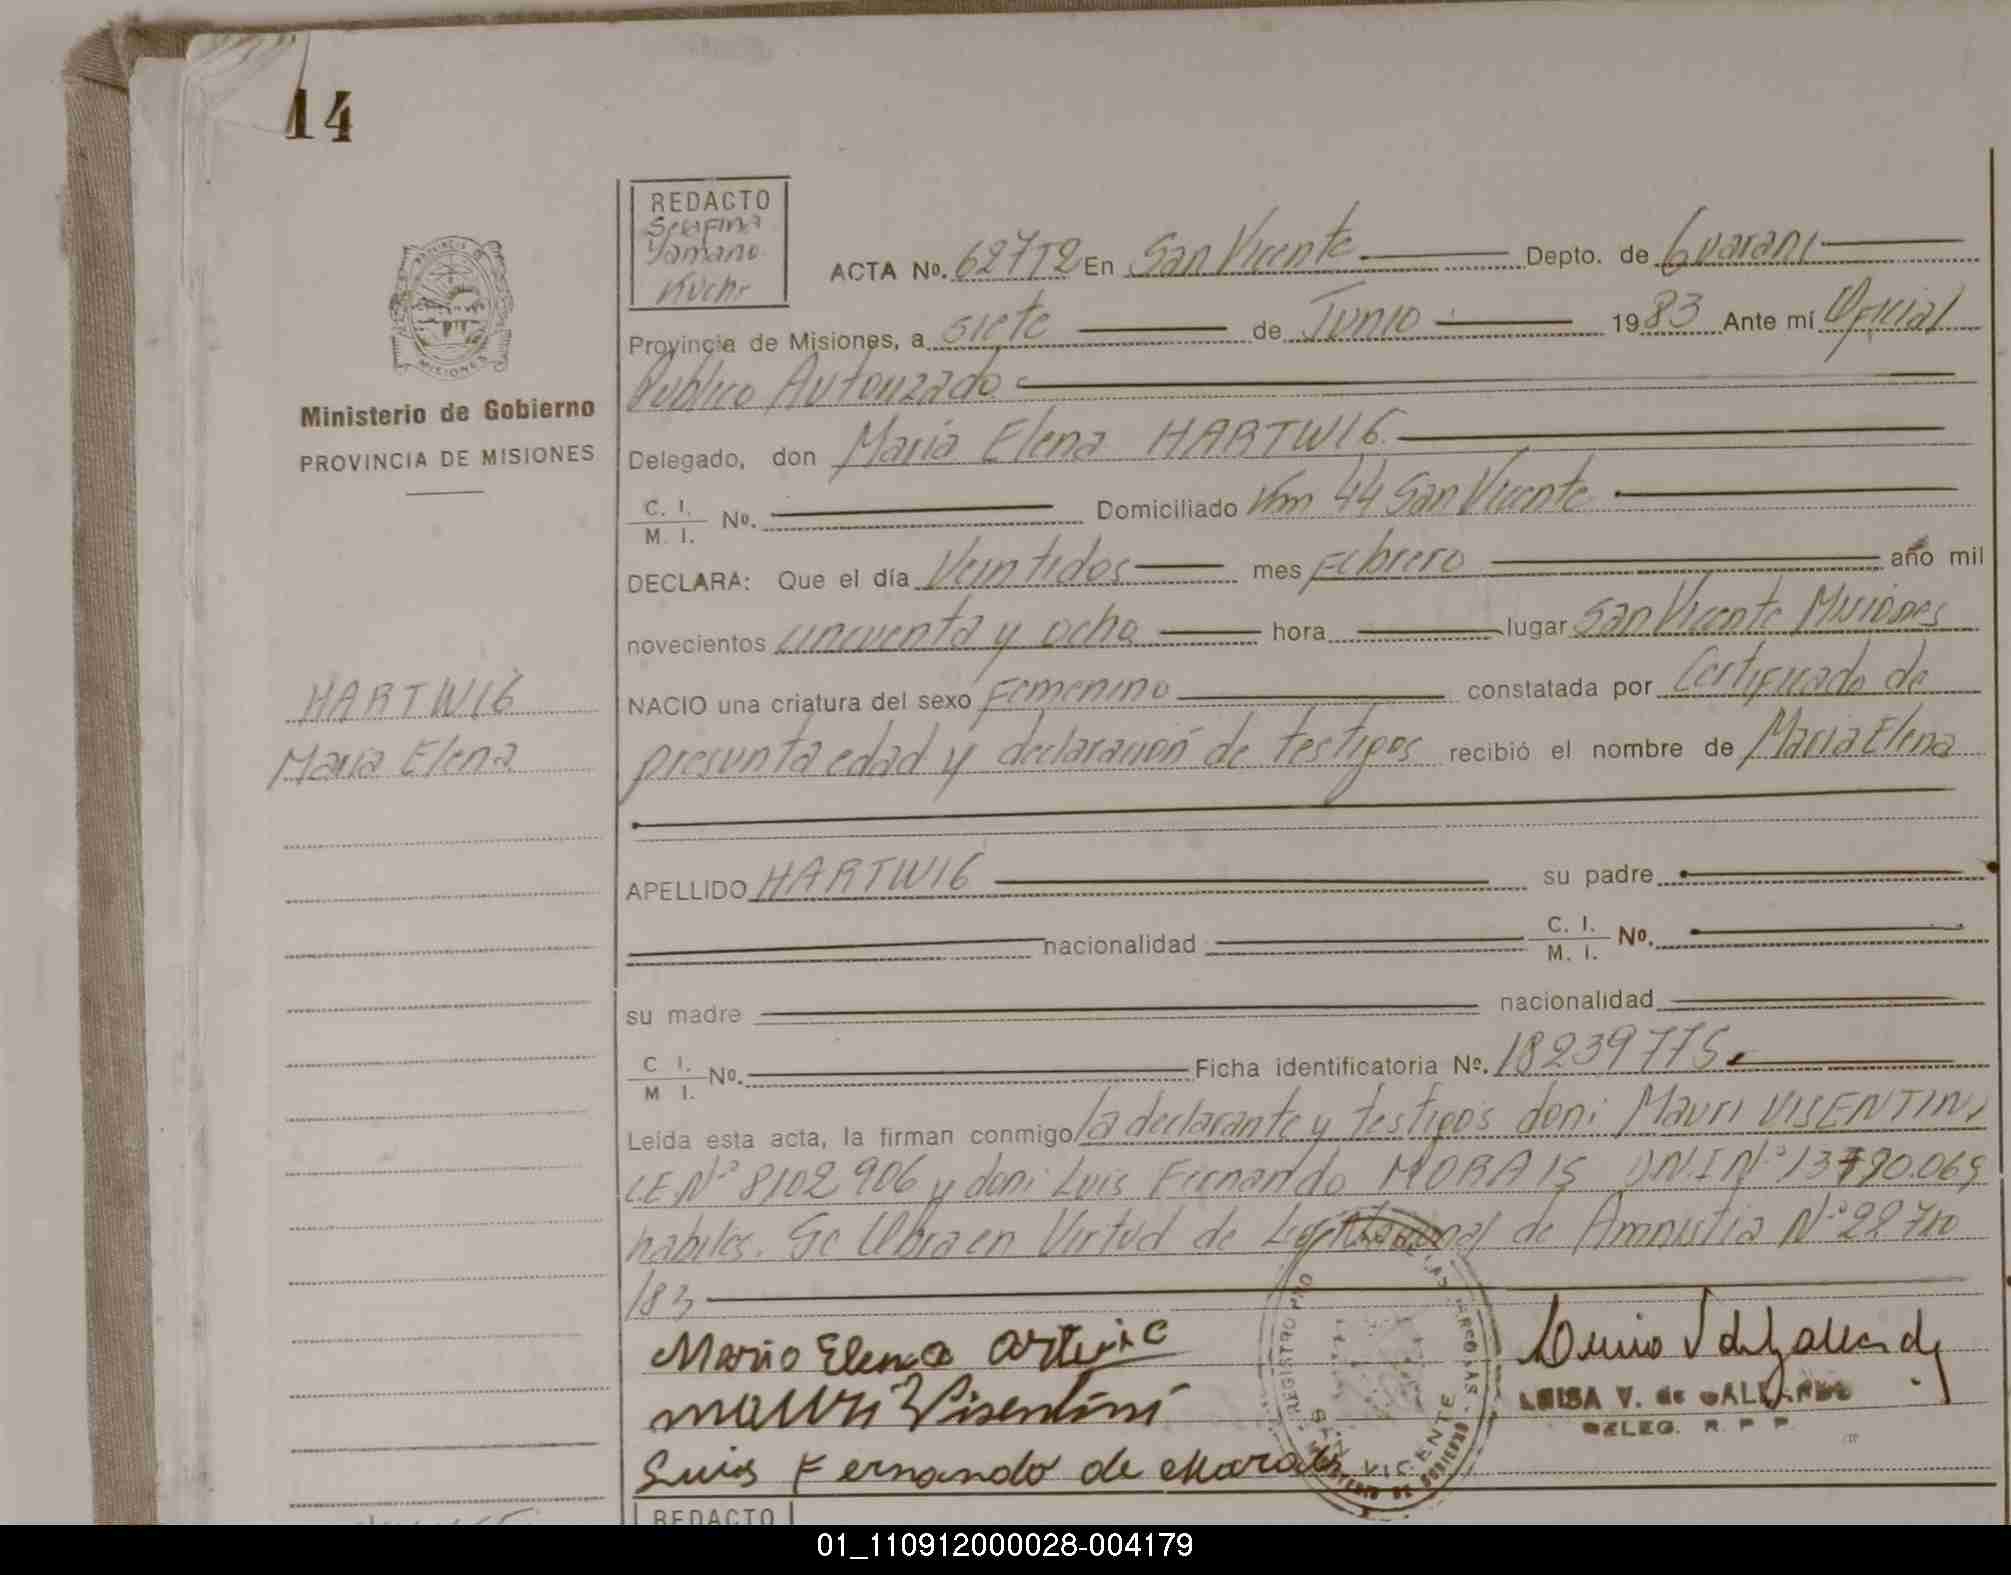 14
REDACTO
Serafina
Yamano
Kuchr
ACTA No. 62712 En San Vicente Depto. de Guarani
Provincia de Misiones, a siete de Junio 1983 Ante mí Oficial
Publico Autorizado
Ministerio de Gobierno
PROVINCIA DE MISIONES
Delegado, don Maria Elena HARTWIG
C. I. / M. I. No. Domiciliado Km 44 San Vicente
DECLARA: Que el día Veintidos mes Febrero año mil
novecientos cincuenta y ocho hora lugar San Vicente Misiones
NACIO una criatura del sexo Femenino constatada por Certificado de
presunta edad y declaración de testigos recibió el nombre de Maria Elena
HARTWIG
Maria Elena
APELLIDO HARTWIG su padre
nacionalidad C. I. / M. I. No.
su madre nacionalidad
C I. / M I. No. Ficha identificatoria No. 18239775
Leída esta acta, la firman conmigo la declarante y testigos don: Mauri VISENTINI
L.E Nº 8102906 y don: Luis Fernando MORAIS D.N.I Nº 13790.069
habiles. Se labra en Virtud de Ley Nacional de Amnistia Nº 22710
/83
Maria Elena
Mauri Visentini
Luis Fernando de Morais
REGISTRO PRO
SAN VICENTE
LUISA V. de GALLARDO
DELEG. R. P. P.
REDACTO
01_110912000028-004179